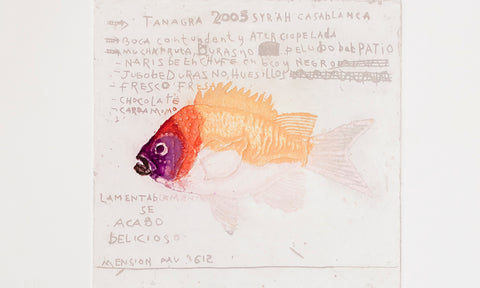 TANAGRA 2005 SYRAH CASABLANCA
BOCA contundent y ATERCIOPELADA
MUCHA FRUTA, DURASNO PELUDO del PATIO
- NARIS DE ENCHUFE en Eco y NEGRO
- JUGO DE DURASNO, HUESILLOS
- FRESCO FRES
- CHOCOLATE
- CARDAMOMO
LAMENTABLEMENTE
SE
ACABO
DELICIOSO
MENSION